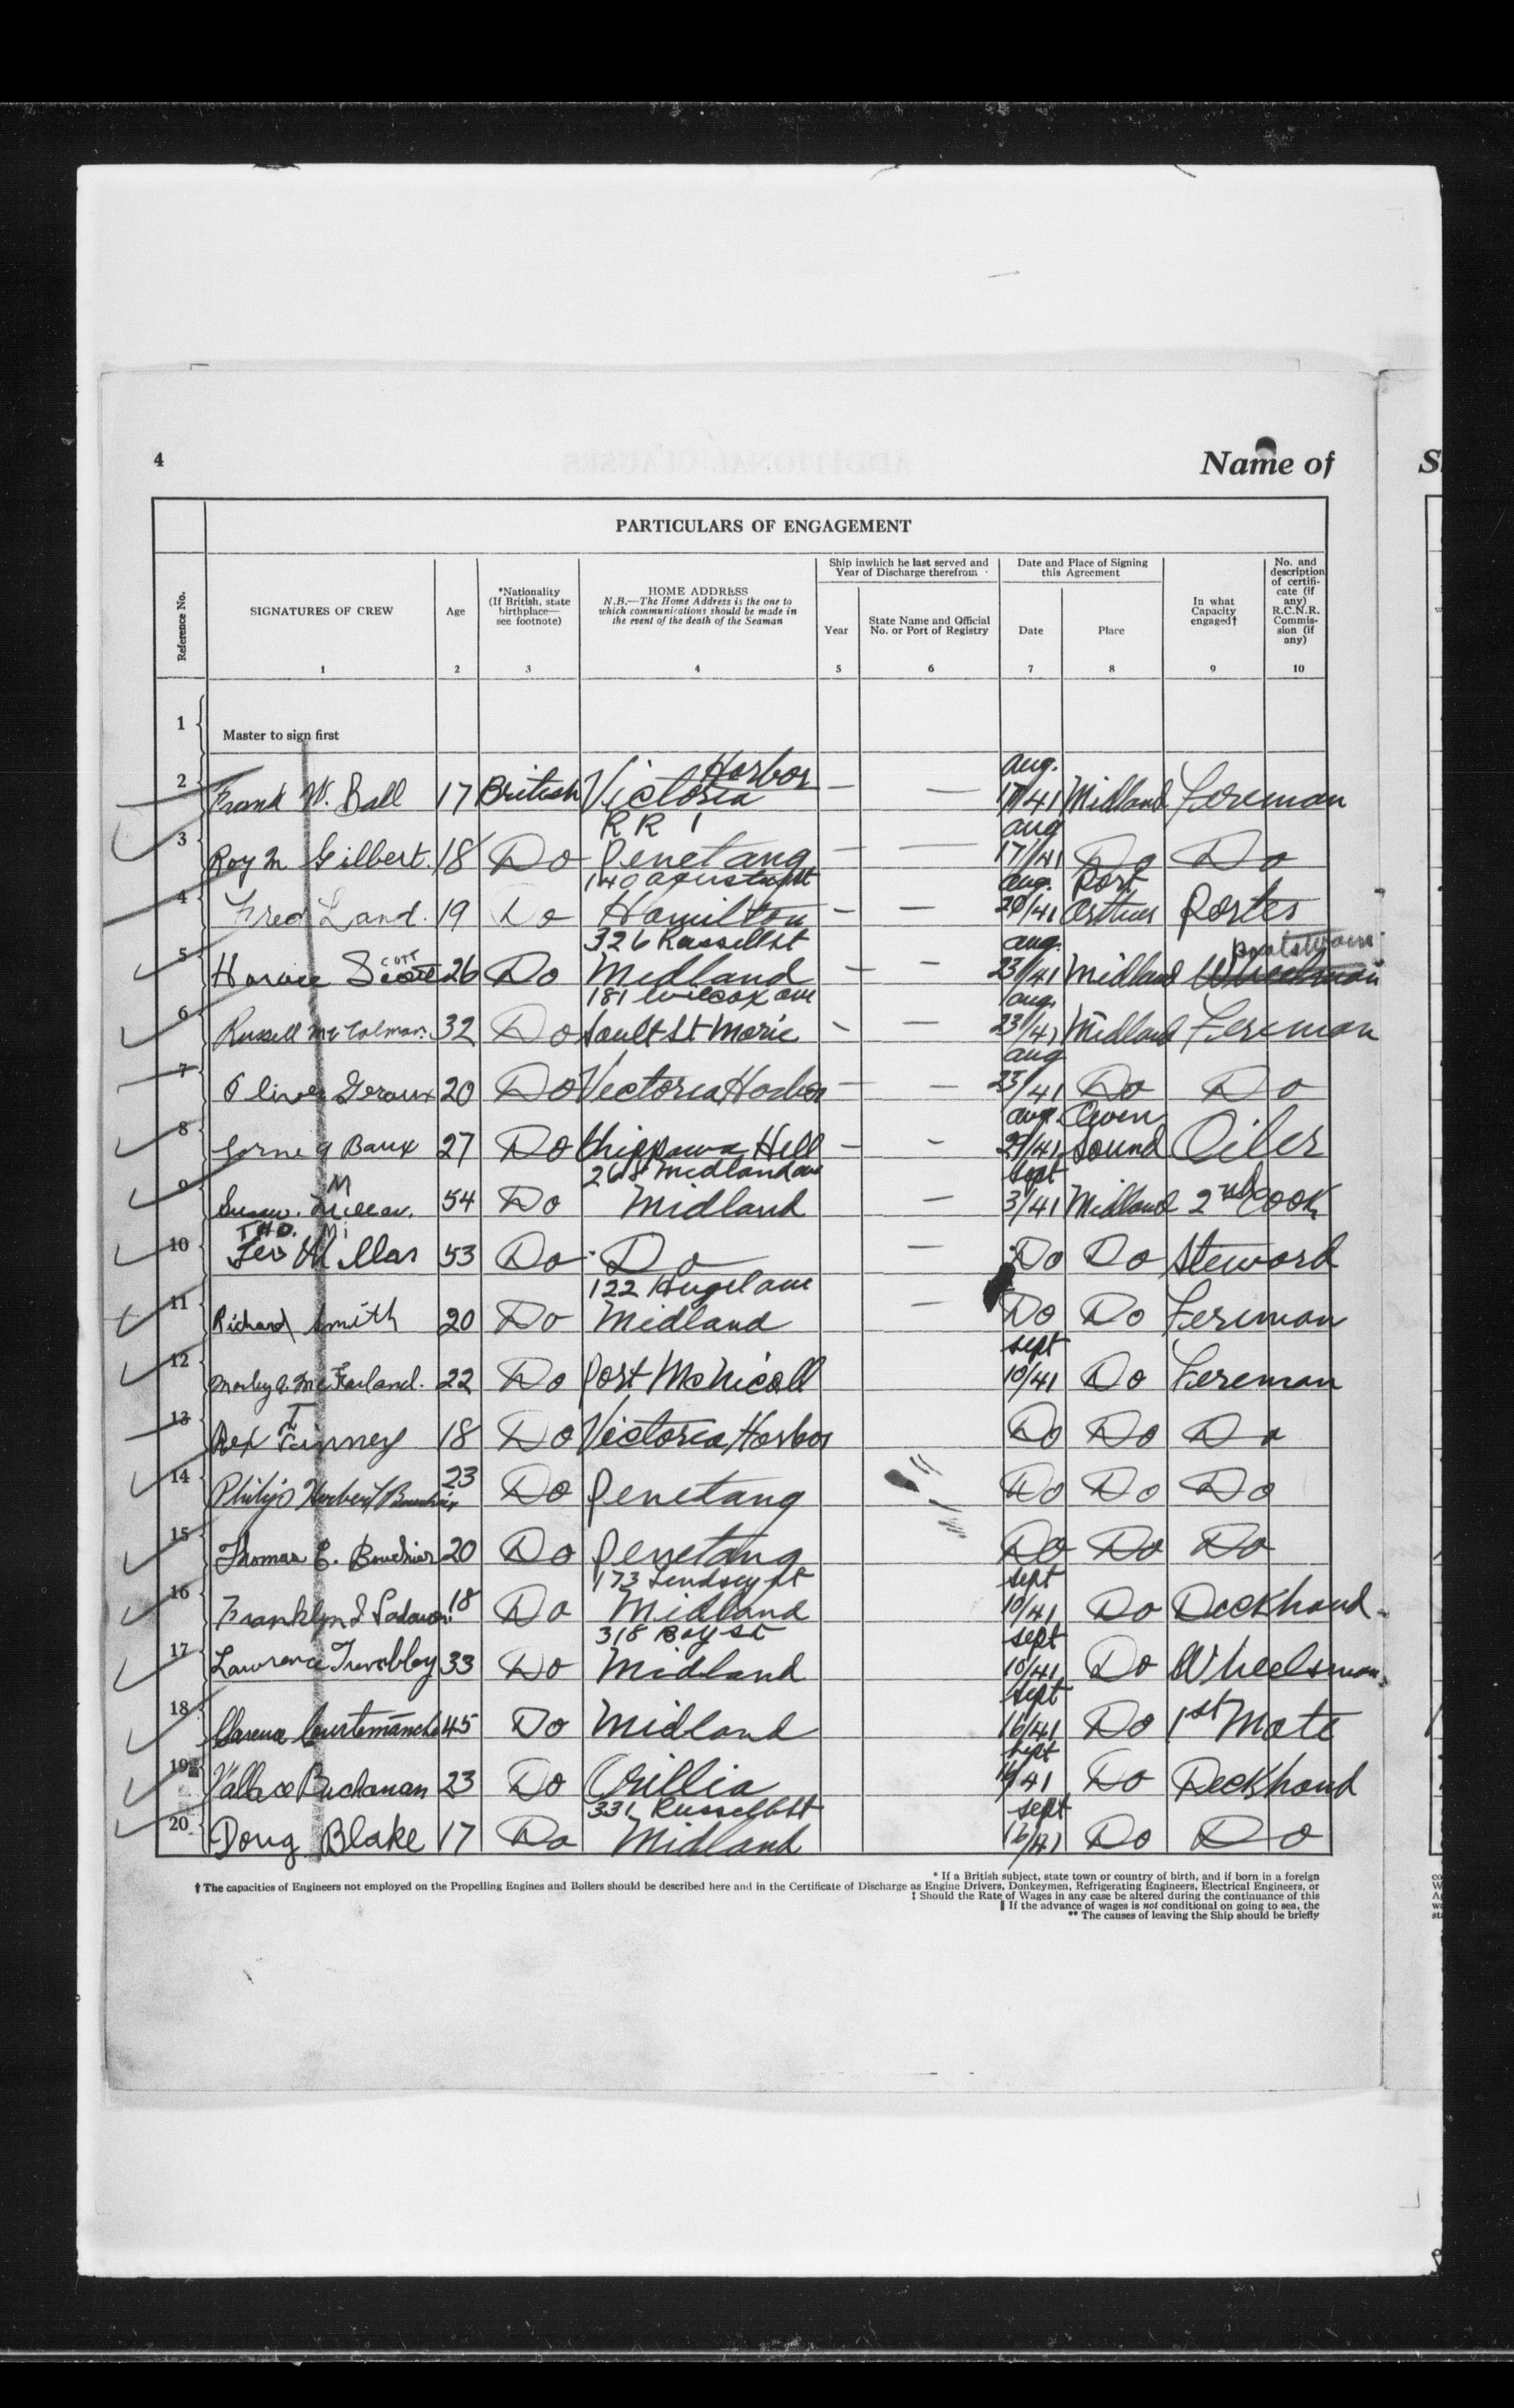 4
Name of
S
PARTICULARS OF ENGAGEMENT
Reference No.
SIGNATURES OF CREW
Age
*Nationality
(If British, state
birthplace—
see footnote)
HOME ADDRESS
N.B.—The Home Address is the one to
which communications should be made in
the event of the death of the Seaman
Ship inwhich he last served and
Year of Discharge therefrom
Year
State Name and Official
No. or Port of Registry
Date and Place of Signing
this Agreement
Date
Place
In what
Capacity
engaged†
No. and
description
of certifi-
cate (if
any)
R.C.N.R.
Commis-
sion (if
any)
1 2 3 4 5 6 7 8 9 10
1 Master to sign first
Harbor Aug.
2 Frank W. Ball 17 British Victoria — — 17/41 Midland Fereman
R R 1 Aug
3 Roy M Gilbert. 18 Do Penetang — — 17/41 Do Do
140 Aug. Port
4 Fred Land. 19 Do Hamilton — — 20/41 Arthur Porter
326 Russell St Aug.
5 Horace Scott 26 Do Midland — — 23/41 Midland Wheelsman
181 Wilcox ave Aug.
6 Russell 32 Do Sault St Marie — — 23/41 Midland Fereman
Aug
7 Oliver Geroux 20 Do Victoria Harbor — — 23/41 Do Do
Aug. Owen
8 Lorne 27 Do Chippawa Hill — — 27/41 Sound Oiler
268 Midland ave Sept
9 M 54 Do Midland — 3/41 Midland 2nd Cook
10 Millar 53 Do Do — Do Do Steward
122 Hugel ave
11 Richard Smith 20 Do Midland — Do Do Fereman
Sept
12 Morley A. McFarland. 22 Do Port McNicoll 10/41 Do Fereman
T
13 Rex Tinney 18 Do Victoria Harbor Do Do Do
14 Philip Herbert 23 Do Penetang Do Do Do
15 Thomas E. Bouchier 20 Do Penetang Do Do Do
173 Lindsey st Sept
16 Franklyn 18 Do Midland 10/41 Do Deckhand
318 Bay st Sept
17 Lawrence Tremblay 33 Do Midland 10/41 Do Wheelsman
Sept
18 Clarence Courtemanche 45 Do Midland 16/41 Do 1st Mate
Sept
19 Wallace Buchanan 23 Do Orillia 16/41 Do Deckhand
331 Russell St Sept
20 Doug Blake 17 Do Midland 16/41 Do Do
* If a British subject, state town or country of birth, and if born in a foreign
† The capacities of Engineers not employed on the Propelling Engines and Boilers should be described here and in the Certificate of Discharge as Engine Drivers, Donkeymen, Refrigerating Engineers, Electrical Engineers, or
‡ Should the Rate of Wages in any case be altered during the continuance of this
‖ If the advance of wages is not conditional on going to sea, the
** The causes of leaving the Ship should be briefly